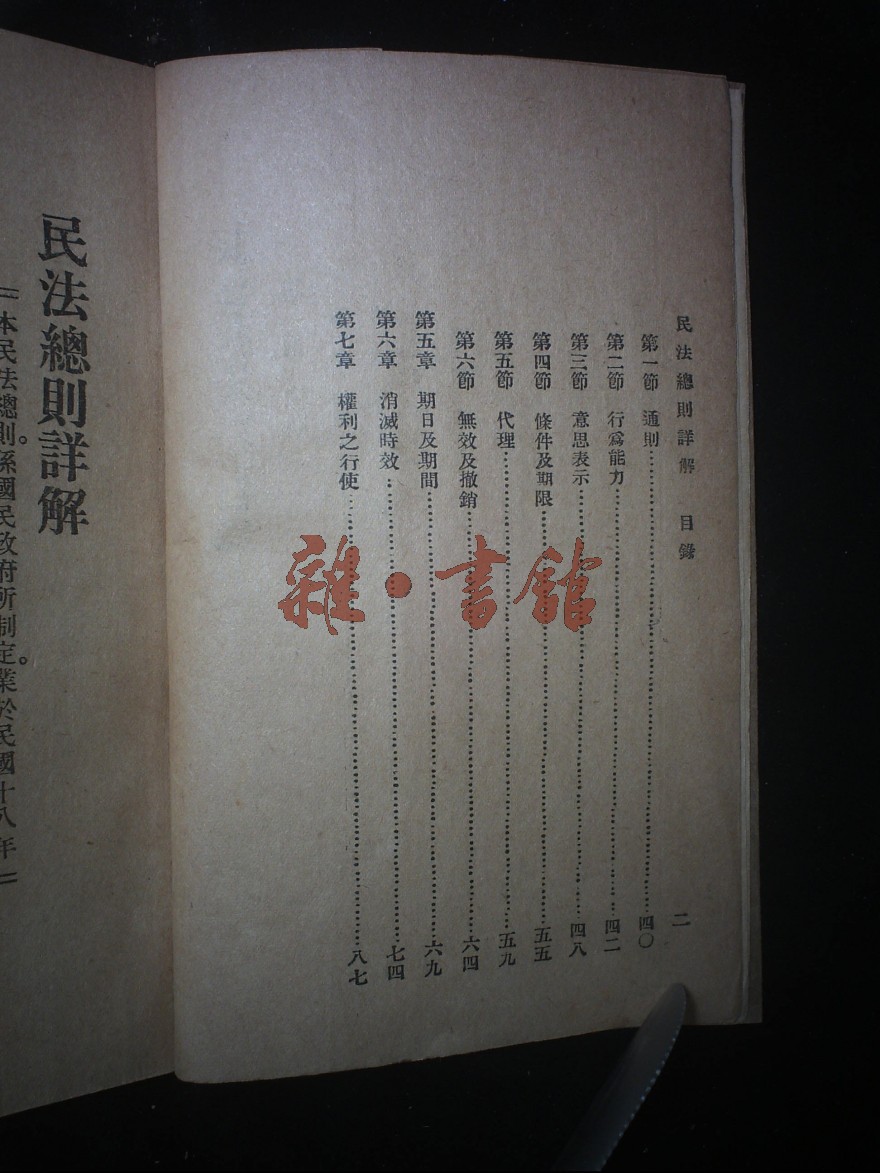 民法總則詳解　目錄
二
第一節　通則……四〇
第二節　行爲能力……四二
第三節　意思表示……四八
第四節　條件及期限……五五
第五節　代理……五九
第六節　無效及撤銷……六四
第五章　期日及期間……六九
第六章　消滅時效……七四
第七章　權利之行使……八七
民法總則詳解
=本民法總則。係國民政府所制定。業於民國十八年=
雜·書舘